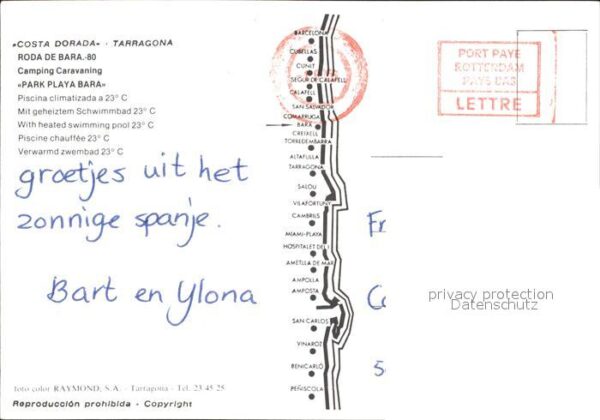 «COSTA DORADA» - TARRAGONA
RODA DE BARA.-80
Camping Caravaning
«PARK PLAYA BARA»
Piscina climatizada a 23° C
Mit geheiztem Schwimmbad 23° C
With heated swimming pool 23° C
Piscine chauffée 23° C
Verwarmd zwembad 23° C
groetjes uit het
zonnige spanje.
Bart en Ylona
foto color RAYMOND, S.A. - Tarragona - Tel. 23 45 25
Reproducción prohibida - Copyright
BARCELONA
CUBELLAS
CUNIT
SEGUR DE CALAFELL
CALAFELL
SAN SALVADOR
COMARRUGA
BARA
CREIXELL
TORREDEMBARRA
ALTAFULLA
TARRAGONA
SALOU
VILAFORTUNY
CAMBRILS
MIAMI-PLAYA
HOSPITALET DEL I.
AMETLLA DE MAR
AMPOLLA
AMPOSTA
SAN CARLOS
VINAROZ
BENICARLÓ
PEÑISCOLA
PORT PAYÉ
ROTTERDAM
PAYS BAS
LETTRE
privacy protection
Datenschutz